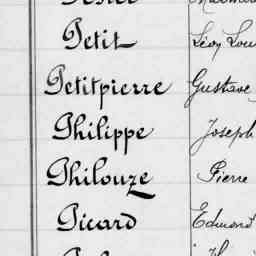 Petit Léon Lou
Petitpierre Gustave
Philippe Joseph
Philouze Pierre
Picard Edmond